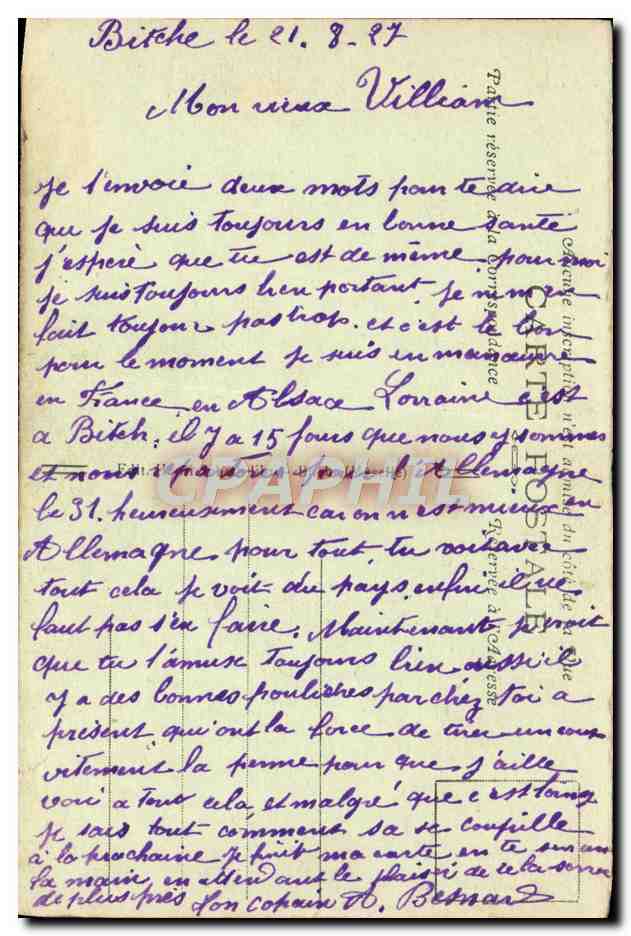 Bitche le 21. 8-27
Mon vieux Villiam
Je t'envoie deux mots pour te dire
que je suis toujours en bonne santé
j'espère que tu est de même pour moi
je suis toujours bien portant je n'men
fait toujour pas trop. et c'est le bon
pour le moment je suis en manœuvre
en France en Alsace Lorraine c'est
a Bitch, il y a 15 jours que nous y sommes
et nous pour l'Allemagne
le 31. heureusement car on n'est mieux en
Allemagne pour tout, tu voit avec
tout cela je voit du pays enfin il ne
faut pas s'en faire. Maintenant je voit
que tu t'amux toujours bien aussi il
y a des bonnes pouliches par chez toi a
présent qui ont la force de tirer un coup
vitement la perme pour que j'aille
voir a tout cela et malgré que c'est loing
je sais tout comment sa se goupille
à la prochaine je finit ma carte en te serrant
la main en attendant le plaisir de te la serrer
de plus près ton copain A. Besnard
CARTE POSTALE
Aucune inscription n'est admise du côté de la Vue
Partie réservée à la Correspondance
Réservée à l'Adresse
CPAPHIL